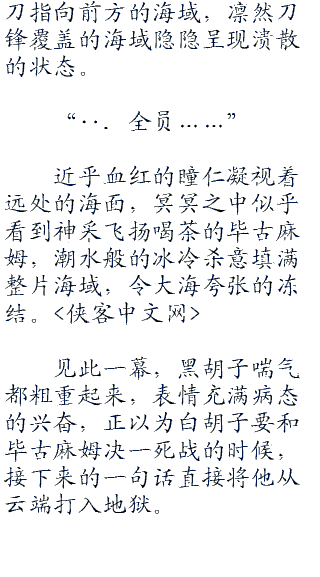 刀指向前方的海域，凛然刀
锋覆盖的海域隐隐呈现溃散
的状态。
“··．全员……”
近乎血红的瞳仁凝视着
远处的海面，冥冥之中似乎
看到神采飞扬喝茶的毕古麻
姆，潮水般的冰冷杀意填满
整片海域，令大海夸张的冻
结。<侠客中文网>
见此一幕，黑胡子喘气
都粗重起来，表情充满病态
的兴奋，正以为白胡子要和
毕古麻姆决一死战的时候，
接下来的一句话直接将他从
云端打入地狱。